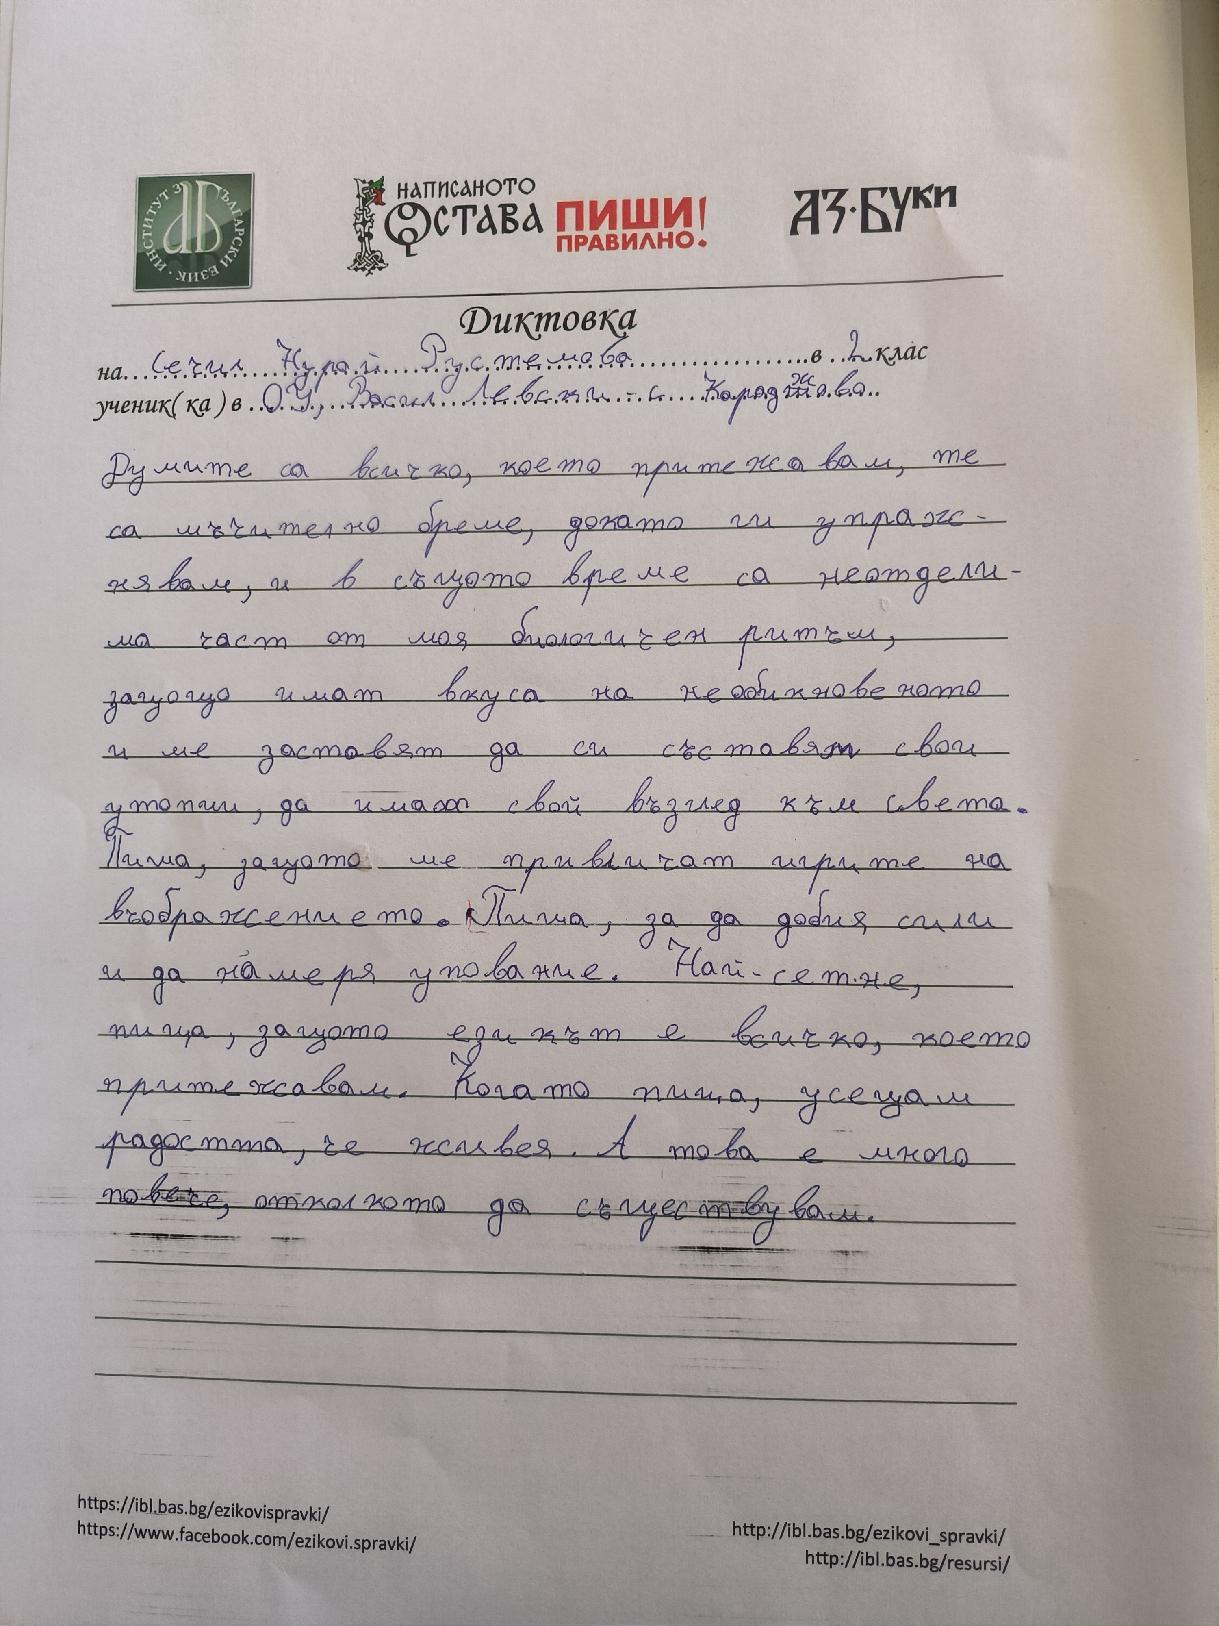 ИНСТИТУТ ЗА БЪЛГАРСКИ ЕЗИК
НАПИСАНОТО
ОСТАВА
ПИШИ
ПРАВИЛНО!
АЗ·БУКИ
Диктовка
на Сечил Нурай Рустемова в 2 клас
ученик(ка) в ОУ, Васил Левски - с. Караджово
Думите са всичко, което притежавам, те
са мъчително бреме, докато ги упраж-
нявам, и в същото време са неотдели-
ма част от моя биологичен ритъм,
защощо имат вкуса на необикновеното
и ме заставят да си съставям свои
утопии, да имам свой възглед към света.
Пиша, защото ме привличат игрите на
въображението. Пиша, за да добия сили
и да намеря упование. Най-сетне,
пища, защото езикът е всичко, което
притежавам. Когато пища, усещам
радостта, че живея. А това е много
повече, отколкото да съществувам.
https://ibl.bas.bg/ezikovispravki/
https://www.facebook.com/ezikovi.spravki/
http://ibl.bas.bg/ezikovi_spravki/
http://ibl.bas.bg/resursi/